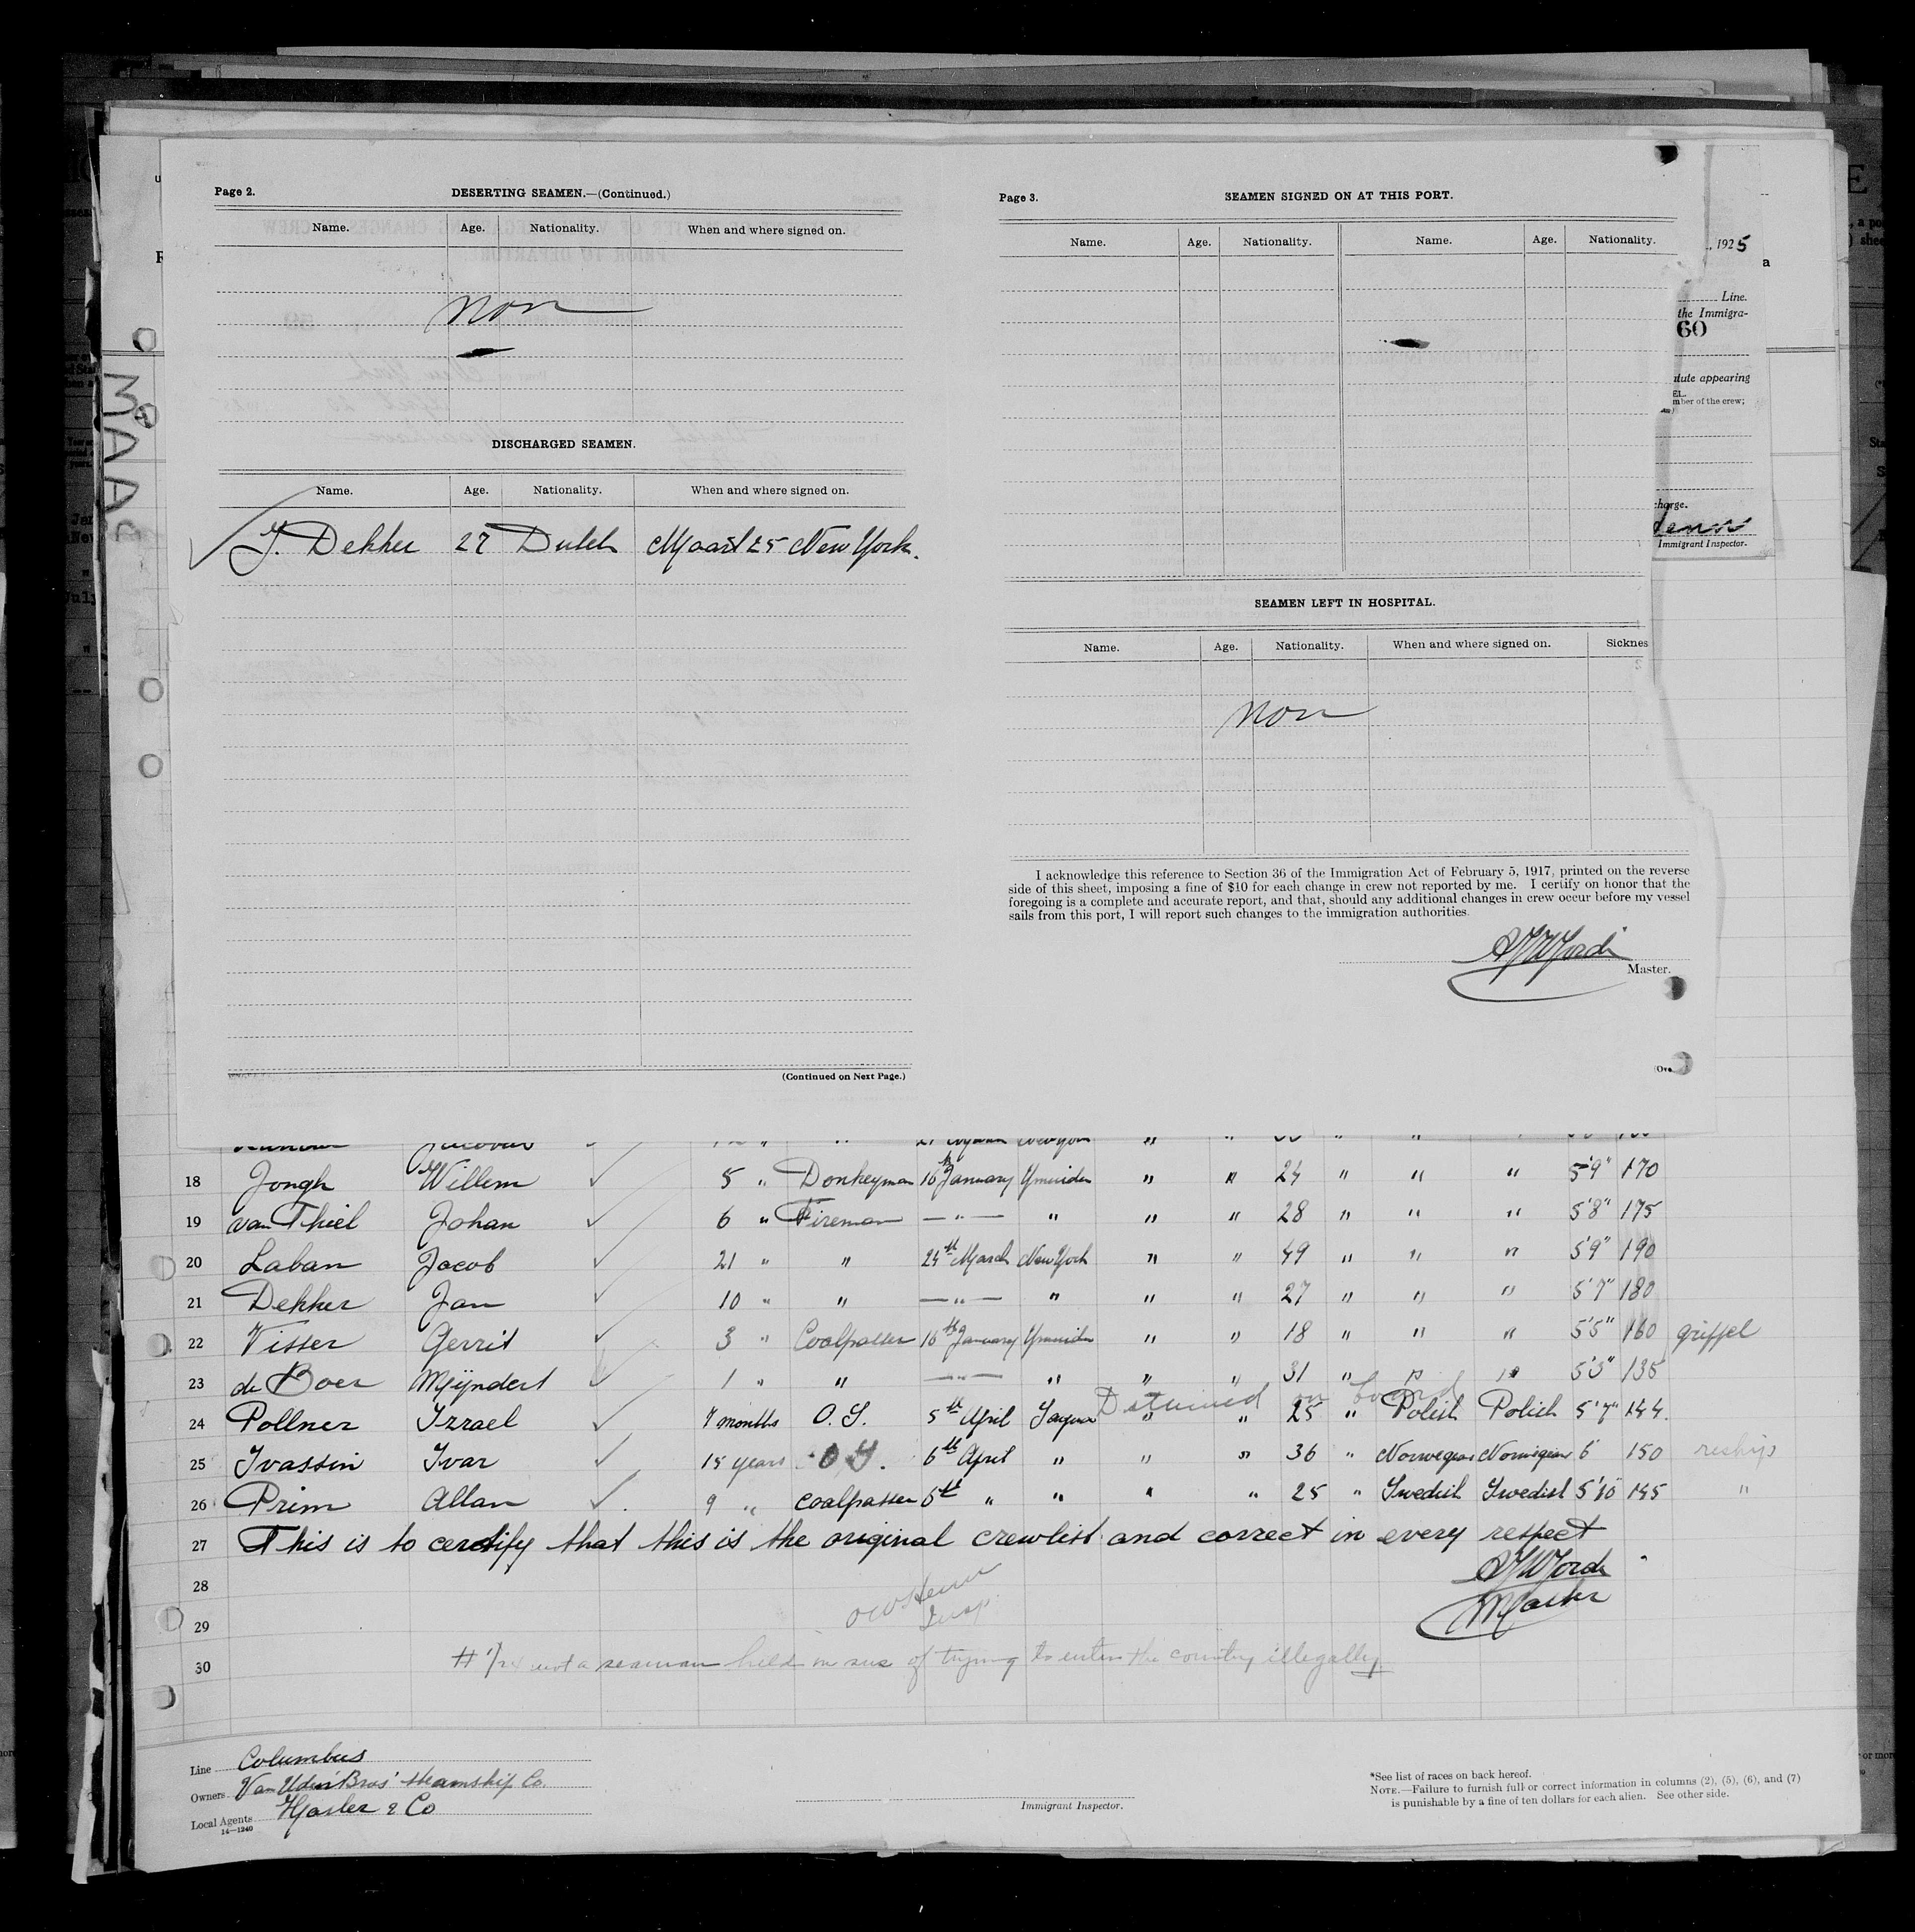 Page 2.
DESERTING SEAMEN.—(Continued.)
Name. Age. Nationality. When and where signed on.
Non
DISCHARGED SEAMEN.
Name. Age. Nationality. When and where signed on.
J. Dekker 27 Dutch Maart 25 New York.
(Continued on Next Page.)
Page 3.
SEAMEN SIGNED ON AT THIS PORT.
Name. Age. Nationality. Name. Age. Nationality.
SEAMEN LEFT IN HOSPITAL.
Name. Age. Nationality. When and where signed on. Sicknes
Non
I acknowledge this reference to Section 36 of the Immigration Act of February 5, 1917, printed on the reverse
side of this sheet, imposing a fine of $10 for each change in crew not reported by me. I certify on honor that the
foregoing is a complete and accurate report, and that, should any additional changes in crew occur before my vessel
sails from this port, I will report such changes to the immigration authorities.
Master.
(Ove
, 1925
a
Line.
the Immigra-
60
dule appearing
EL.
mber of the crew;
charge.
Immigrant Inspector.
MAAS
18 Jongh Willem ✓ 5 " Donkeyman 16th January Ymuiden " " 24 " " " 5'9" 170
19 van Thiel Johan ✓ 6 " Fireman — " — " " " 28 " " " 5'8" 175
20 Laban Jacob ✓ 21 " " 24th March New York " " 49 " " " 5'9" 190
21 Dekker Jan ✓ 10 " " — " — " " " 27 " " " 5'7" 180
22 Visser Gerrit ✓ 3 " Coalpasser 16th January Ymuiden " " 18 " " " 5'5" 160 griffel
23 de Boer Mÿndert ✓ 1 " " — " — " " " 31 " " " 5'3" 135
Detained on board
24 Pollner Izrael ✓ 7 months O.S. 5th April " " 25 " Polish Polish 5'7" 144.
25 Ivassin Ivar ✓ 15 years O.S. 6th April " " " 36 " Norwegian Norwegian 6' 150 reship
26 Prim Allan ✓ 9 " Coalpasser 6th " " " " 25 " Swedish Swedish 5'10 145 "
27 This is to certify that this is the original crewlist and correct in every respect
Master
28
Insp.
29
30 not a seaman held on of trying to enter the country illegally
Line Columbus
Owners Van Uden Bros' steamship Co.
Local Agents Hasler & Co
14—1240
Immigrant Inspector.
*See list of races on back hereof.
NOTE.—Failure to furnish full or correct information in columns (2), (5), (6), and (7)
is punishable by a fine of ten dollars for each alien. See other side.